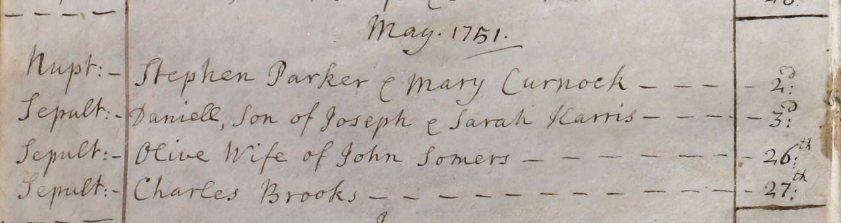 May. 1751.
Nupt:- Stephen Parker & Mary Curnock - - - - 2d:
Sepult:- Daniell, Son of Joseph & Sarah Harris - - - - 3d:
Sepult:- Olive Wife of John Somers - - - - - - - 26th:
Sepult:- Charles Brooks - - - - - - - - - - - 27th: